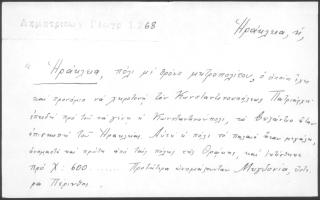 Δημητρίου Γεωργ 1.268
Ἡράκλεια, ἡ,
"Ἡράκλεια, πόλι μὲ θρόνο μητροπολίτου, ὁ ὁποῖος ἔχει
καὶ προνόμιο νὰ χειροτονῆ τὸν Κωνσταντινουπόλεως Πατριάρχη
ἐπειδὴ πρὸ τοῦ νὰ γίνη ἡ Κωνσταντινούπολι, τὸ Βυζάντιο ἦταν
ἐπισκοπὴ τοῦ Ἡρακλείας. Αὐτὴ ἡ πόλι τὸ παλαιὸ ἦταν μεγάλη,
ὀνομαστὴ καὶ πρώτη ἀπὸ τὰς πόλεις τῆς Θράκης, καὶ ἐκτίσθηκε
πρὸ Χ: 600 ...... Προτήτερα ὠνομάζονταν Μυγδονία, ὕστε-
ρα Πέρινθος.